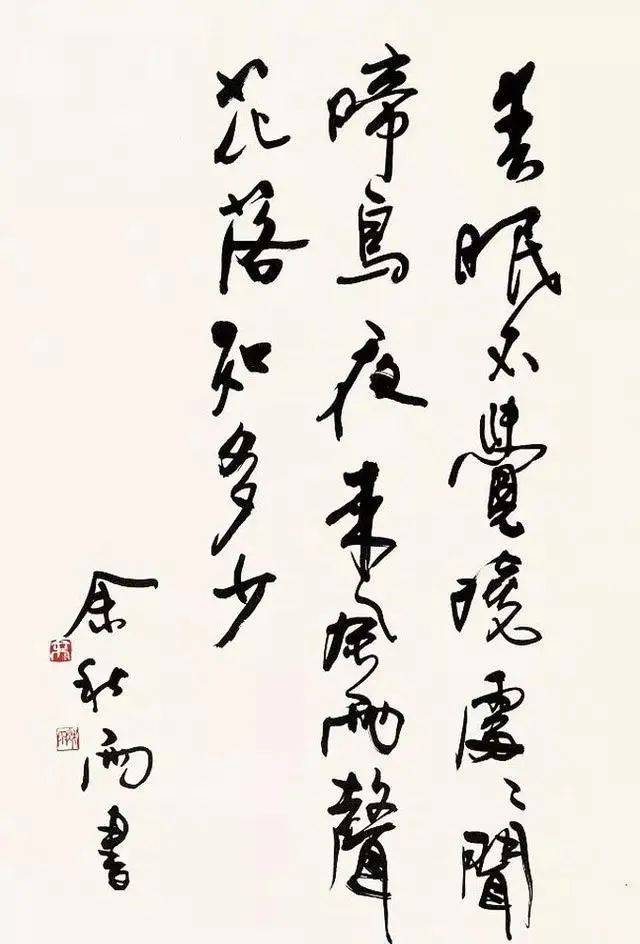 春眠不覺曉處〻聞
啼鳥夜来風雨聲
花落知多少
余秋雨書